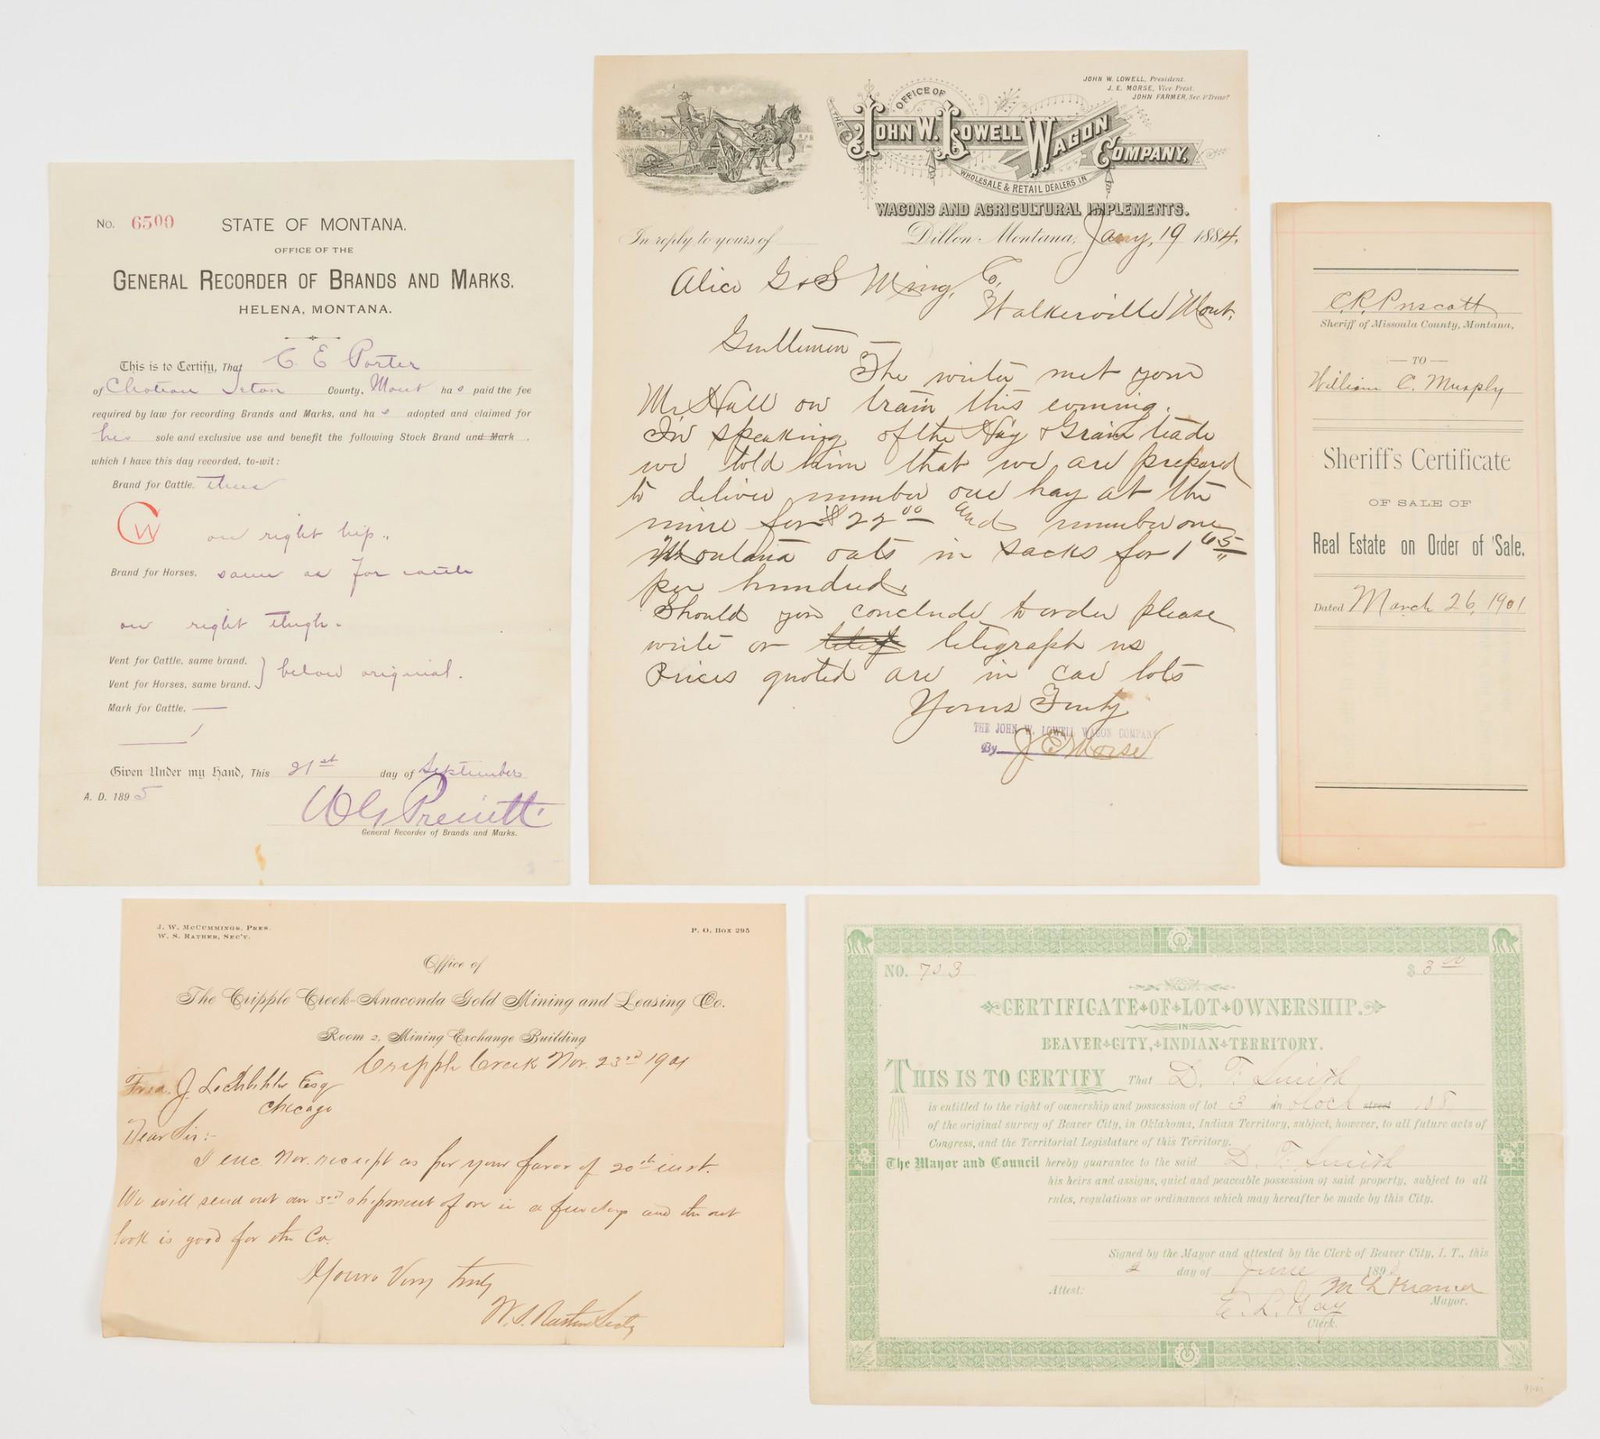 No. 6500
STATE OF MONTANA.
OFFICE OF THE
GENERAL RECORDER OF BRANDS AND MARKS.
HELENA, MONTANA.
This is to Certify, That C E Porter
of Choteau Teton County, Mont has paid the fee
required by law for recording Brands and Marks, and has adopted and claimed for
his sole and exclusive use and benefit the following Stock Brand and Mark,
which I have this day recorded, to-wit:
Brand for Cattle. thus
CW on right hip.
Brand for Horses. same as for cattle
on right thigh.
Vent for Cattle, same brand.
Vent for Horses, same brand. } below original.
Mark for Cattle. —
Given Under my Hand, This 21st day of September
A. D. 1895
W G Preuitt
General Recorder of Brands and Marks.
JOHN W. LOWELL, President.
J. E. MORSE, Vice Prest.
JOHN FARMER, Sec. & Treas.
OFFICE OF
THE JOHN W. LOWELL WAGON COMPANY,
WHOLESALE & RETAIL DEALERS IN
WAGONS AND AGRICULTURAL IMPLEMENTS.
In reply to yours of
Dillon, Montana, Jany, 19 1884.
Alice G & S Ming. Co,
Walkerville Mont.
Gentlemen —
The writer met your
Mr Hall on train this evening.
In speaking of the Hay & Grain trade
we told him that we are prepared
to deliver number one hay at the
mine for $22 00 and number one
Montana oats in sacks for 1 65
per hundred.
Should you conclude to order please
write or telegraph us
Prices quoted are in car lots
Yours Truly
THE JOHN W. LOWELL WAGON COMPANY
By J E Morse
C. R. Prescott
Sheriff of Missoula County, Montana,
—TO—
William C. Murphy
Sheriff's Certificate
OF SALE OF
Real Estate on Order of Sale.
Dated March 26, 1901
J. W. McCummings, Pres.
W. S. Rather, Sec'y.
P. O. Box 295
Office of
The Cripple Creek-Anaconda Gold Mining and Leasing Co.
Room 2, Mining Exchange Building
Cripple Creek Nov. 23rd 1901
J. Esq
Chicago
Dear Sir:-
I enc Nov. receipt as per your favor of 20th inst.
We will send out our 3rd shipment of ore in a few days and the out
look is good for the Co.
Yours Very Truly
W. S. Rather Secty
NO. 703
$ 3.00
CERTIFICATE OF LOT OWNERSHIP.
IN
BEAVER CITY, INDIAN TERRITORY.
THIS IS TO CERTIFY That D. F. Smith
is entitled to the right of ownership and possession of lot 3 in block street 108
of the original survey of Beaver City, in Oklahoma, Indian Territory, subject, however, to all future acts of
Congress, and the Territorial Legislature of this Territory.
The Mayor and Council hereby guarantee to the said D. F. Smith
his heirs and assigns, quiet and peaceable possession of said property, subject to all
rules, regulations or ordinances which may hereafter be made by this City.
Signed by the Mayor and attested by the Clerk of Beaver City, I. T., this
day of June 189
M L Kramer
Mayor.
Attest:
L. Hay
Clerk.